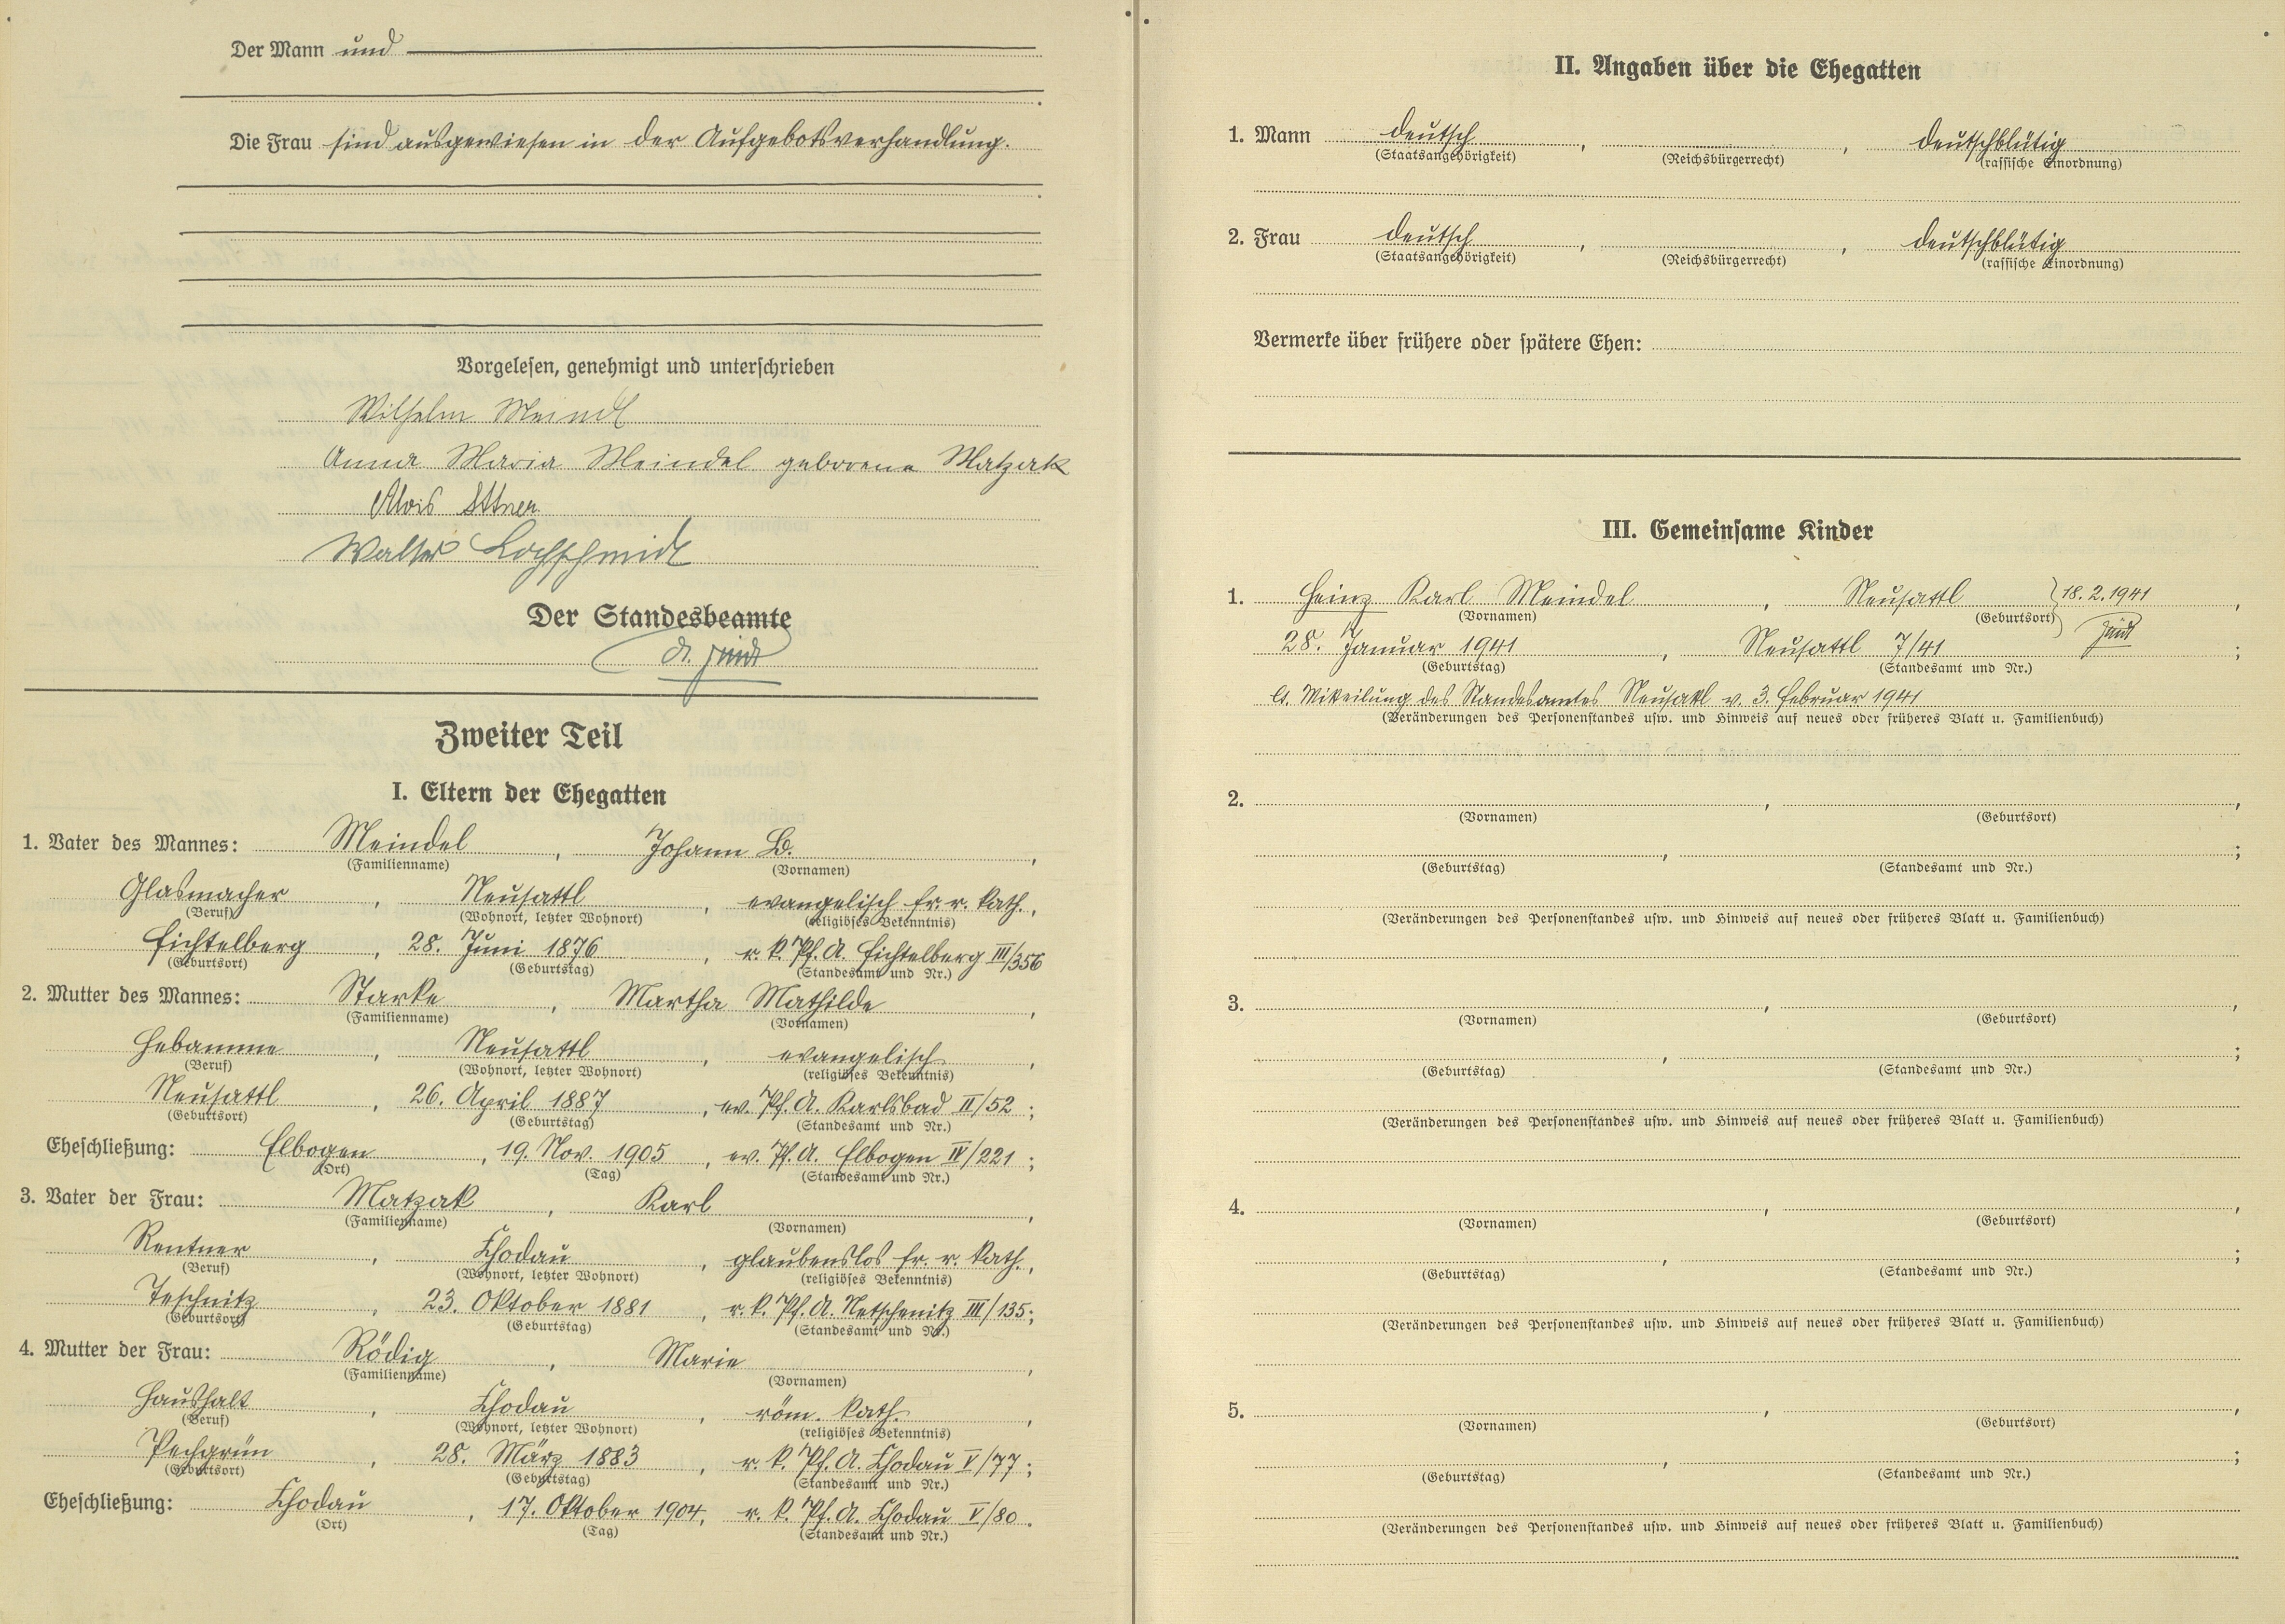 Der Mann und
Die Frau sind ausgewiesen in der Aufgebotsverhandlung.
Vorgelesen, genehmigt und unterschrieben
Wilhelm Meindl
Anna Maria Meindel geborene Matzak
Alois Ittner
Walter Lochschmidt
Der Standesbeamte
Zweiter Teil
I. Eltern der Ehegatten
1. Vater des Mannes: Meindel, Johann B.,
(Familienname) (Vornamen)
Glasmacher, Neusattl, evangelisch fr. r. kath.,
(Beruf) (Wohnort, letzter Wohnort) (religiöses Bekenntnis)
Fichtelberg, 28. Juni 1876, r. k. Pf. A. Fichtelberg III/356
(Geburtsort) (Geburtstag) (Standesamt und Nr.)
2. Mutter des Mannes: Starke, Martha Mathilde,
(Familienname) (Vornamen)
Hebamme, Neusattl, evangelisch,
(Beruf) (Wohnort, letzter Wohnort) (religiöses Bekenntnis)
Neusattl, 26. April 1887, ev. Pf. A. Karlsbad II/52;
(Geburtsort) (Geburtstag) (Standesamt und Nr.)
Eheschließung: Elbogen, 19. Nov. 1905, ev. Pf. A. Elbogen IV/221;
(Ort) (Tag) (Standesamt und Nr.)
3. Vater der Frau: Matzak, Karl,
(Familienname) (Vornamen)
Rentner, Chodau, glaubenslos fr. r. kath.,
(Beruf) (Wohnort, letzter Wohnort) (religiöses Bekenntnis)
Teschnitz, 23. Oktober 1881, r. k. Pf. A. Netschenitz III/135;
(Geburtsort) (Geburtstag) (Standesamt und Nr.)
4. Mutter der Frau: Rödig, Marie,
(Familienname) (Vornamen)
Haushalt, Chodau, röm. kath.,
(Beruf) (Wohnort, letzter Wohnort) (religiöses Bekenntnis)
Pechgrün, 28. März 1883, r. k. Pf. A. Chodau V/77;
(Geburtsort) (Geburtstag) (Standesamt und Nr.)
Eheschließung: Chodau, 17. Oktober 1904, r. k. Pf. A. Chodau V/80.
(Ort) (Tag) (Standesamt und Nr.)
II. Angaben über die Ehegatten
1. Mann deutsch, , deutschblütig
(Staatsangehörigkeit) (Reichsbürgerrecht) (rassische Einordnung)
2. Frau deutsch, , deutschblütig
(Staatsangehörigkeit) (Reichsbürgerrecht) (rassische Einordnung)
Vermerke über frühere oder spätere Ehen:
III. Gemeinsame Kinder
1. Heinz Karl Meindel, Neusattl } 18. 2. 1941,
(Vornamen) (Geburtsort)
28. Januar 1941, Neusattl 7/41;
(Geburtstag) (Standesamt und Nr.)
lt. Mitteilung des Standesamtes Neusattl v. 3. Februar 1941
(Veränderungen des Personenstandes usw. und Hinweis auf neues oder früheres Blatt u. Familienbuch)
2. , ,
(Vornamen) (Geburtsort)
, ;
(Geburtstag) (Standesamt und Nr.)
(Veränderungen des Personenstandes usw. und Hinweis auf neues oder früheres Blatt u. Familienbuch)
3. , ,
(Vornamen) (Geburtsort)
, ;
(Geburtstag) (Standesamt und Nr.)
(Veränderungen des Personenstandes usw. und Hinweis auf neues oder früheres Blatt u. Familienbuch)
4. , ,
(Vornamen) (Geburtsort)
, ;
(Geburtstag) (Standesamt und Nr.)
(Veränderungen des Personenstandes usw. und Hinweis auf neues oder früheres Blatt u. Familienbuch)
5. , ,
(Vornamen) (Geburtsort)
, ;
(Geburtstag) (Standesamt und Nr.)
(Veränderungen des Personenstandes usw. und Hinweis auf neues oder früheres Blatt u. Familienbuch)